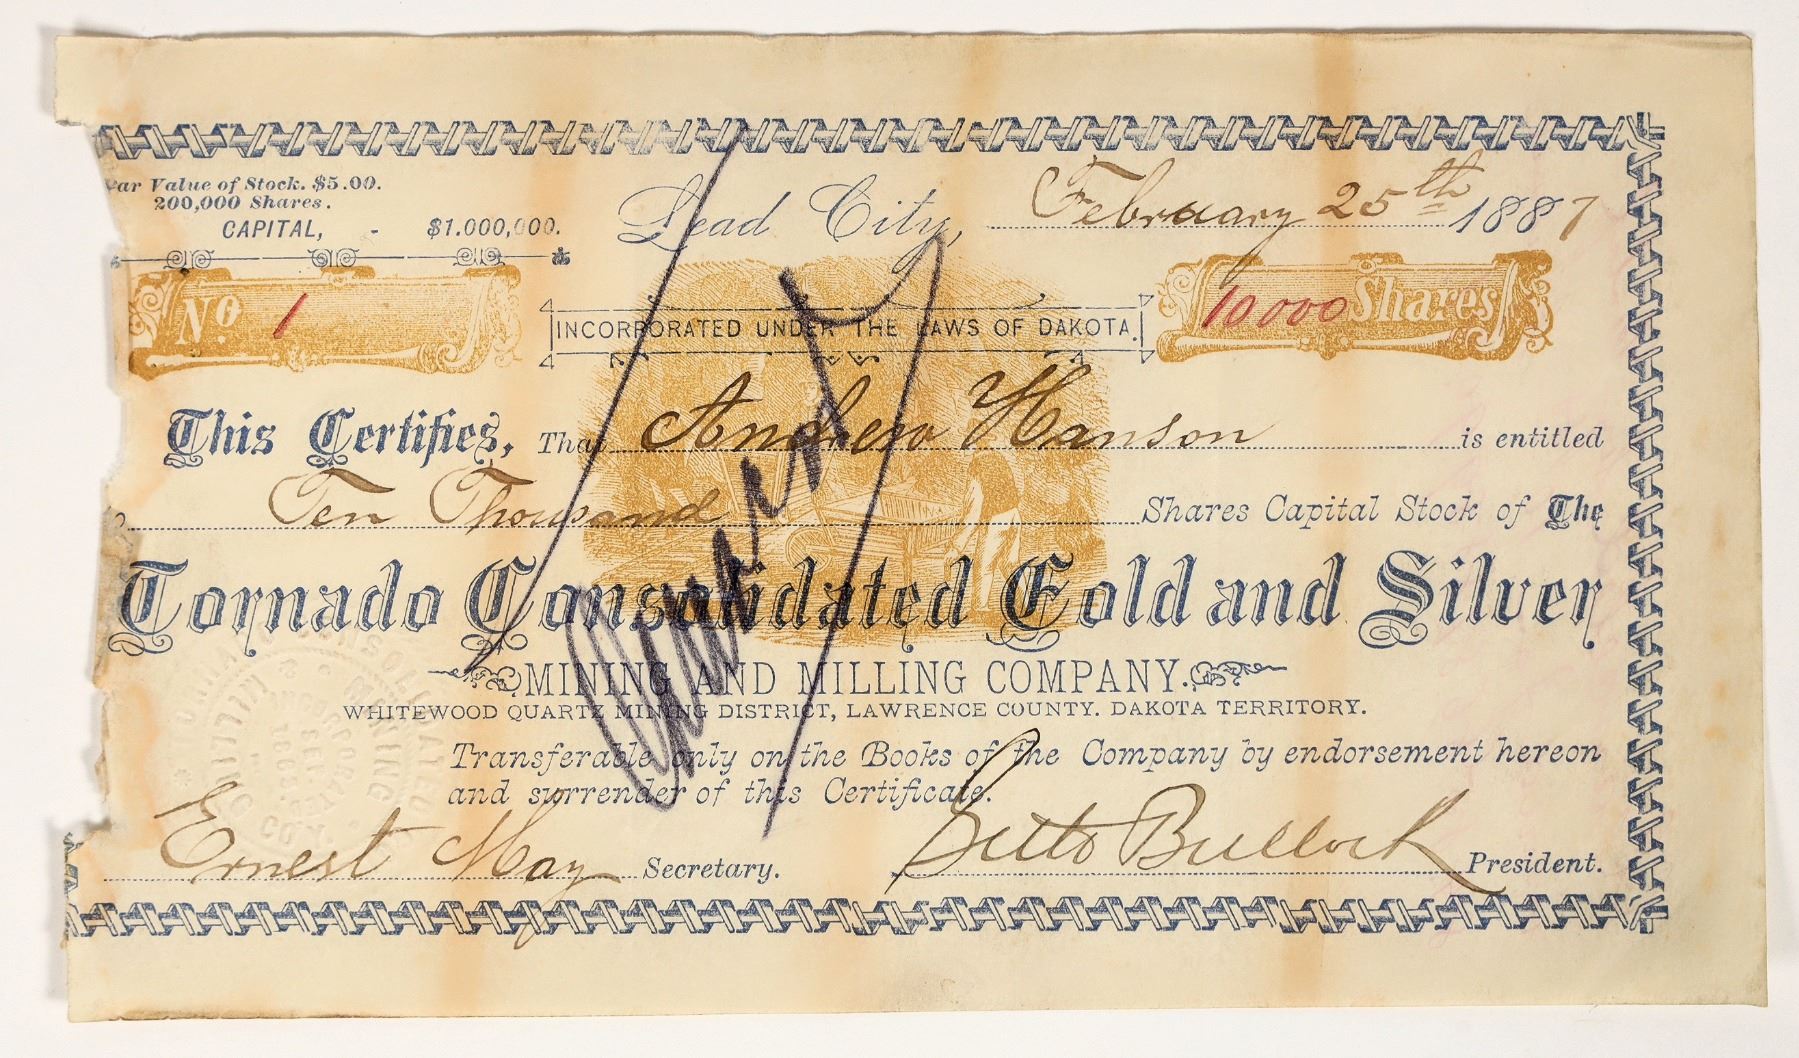 Par Value of Stock. $5.00.
200,000 Shares.
CAPITAL, - $1.000,000.
Lead City, February 25th 1887
No 1
INCORPORATED UNDER THE LAWS OF DAKOTA.
10000 Shares
This Certifies, That Andrew Hanson is entitled
Ten Thousand Shares Capital Stock of The
Tornado Consolidated Gold and Silver
MINING AND MILLING COMPANY.
WHITEWOOD QUARTZ MINING DISTRICT, LAWRENCE COUNTY. DAKOTA TERRITORY.
Transferable only on the Books of the Company by endorsement hereon
and surrender of this Certificate.
Ernest May Secretary. Seth Bullock President.